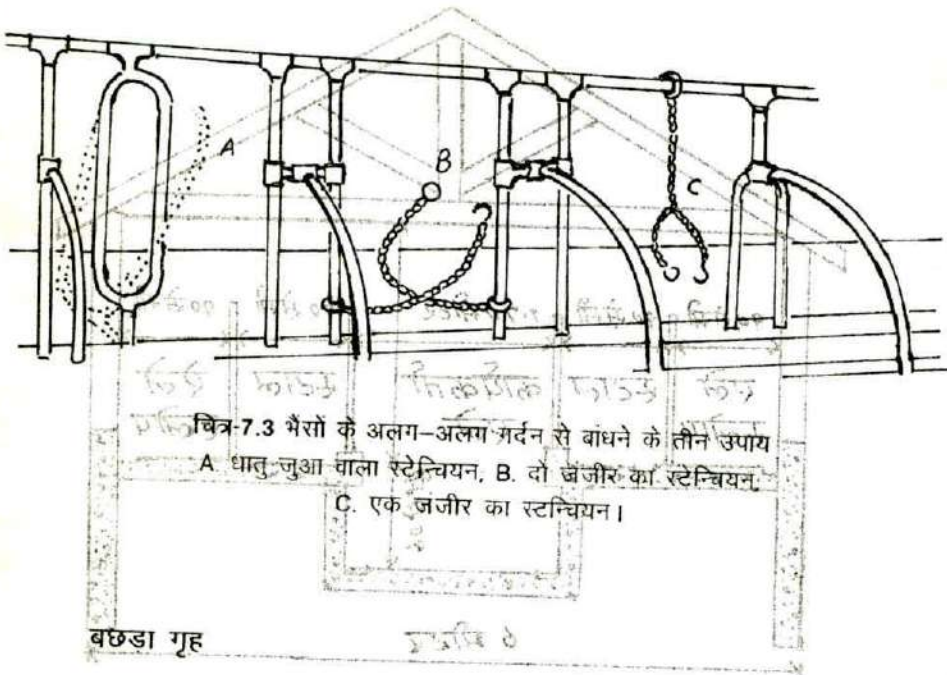 A
B
C
चित्र-7.3 भैंसों के अलग-अलग गर्दन से बांधने के तीन उपाय
A धातु जुआ वाला स्टेन्चियन, B. दो जंजीर का स्टेन्चियन,
C. एक जंजीर का स्टन्चियन।
बछडा गृह